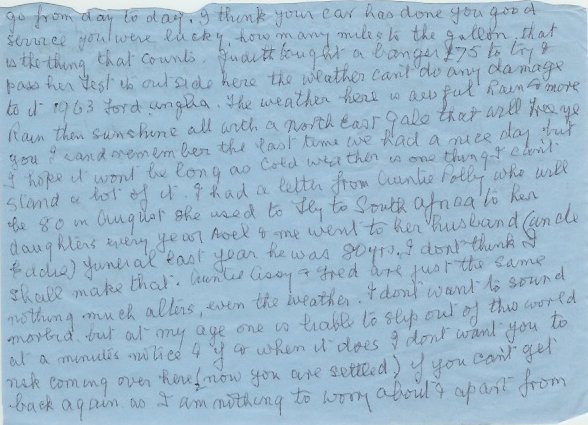 go from day to day. I think your car has done you good
service you were lucky, how many miles to the galleon, that
is the thing that counts. Judith bought a banger £75 to try &
pass her test its outside here the weather can't do any damage
to it 1963 Ford anglia. The weather here is aweful Rain & more
Rain then sunshine all with a north East gale that will freeze
you I cand remember the last time we had a nice day but
I hope it wont be long as Cold weather is one thing I can't
stand a lot of it. I had a letter from Auntie Polly who will
be 80 in August she used to fly to South Africa to her
daughters every year, & me went to her husband (uncle
Eddie) funeral last year he was 80yrs, I dont think I
shall make that. Auntie Cissy & Fred are just the same
nothing much alters, even the weather. I dont want to sound
morbid but at my age one is liable to slip out of this world
at a minutes notice & if or when it does I dont want you to
risk coming over here (now you are settled) if you can't get
back again as I am nothing to worry about & apart from